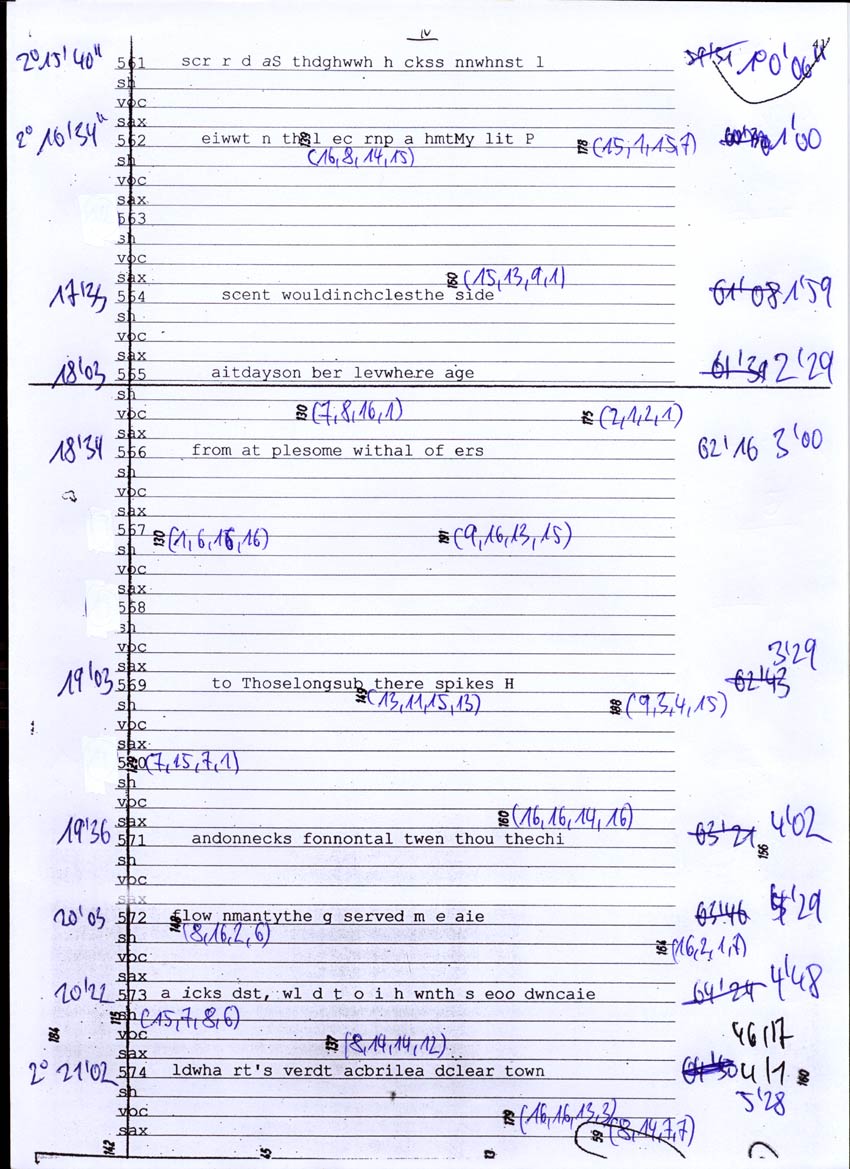 IV
2°15'40" 561 scr r d aS thdghwwh h ckss nnwhnst l 1°0'06"
sh
voc
sax
2° 16'34" 562 eiwwt n thel ec rnp a hmtMy lit P 178 (15,1,15,7) 1'00
sh 139 (16,8,14,15)
voc
sax
563
sh
voc
sax 160 (15,13,9,1)
17'23 564 scent wouldinchclesthe side 61'08 1'59
sh
voc
sax
18'03 565 aitdayson ber levwhere age 61'39 2'29
sh
voc 130 (7,8,16,1) 175 (2,1,2,1)
sax
18'34 566 from at plesome withal of ers 62'16 3'00
sh
voc
sax
567
sh 130 (1,6,16,16) 191 (9,16,13,15)
voc
sax
568
sh
voc
sax 3'29
19'03 569 to Thoselongsub there spikes H 62'43
sh 149 (13,11,15,13) 188 (9,3,4,15)
voc
sax
(7,15,7,1)
sh
voc
sax 160 (16,16,14,16)
19'36 571 andonnecks fonnontal twen thou thechi 63'21 156 4'02
sh
voc
sax
20'03 572 flow nmantythe g served m e aie 63'46 4'29
sh 148 (8,16,2,6)
voc 164 (16,2,1,7)
sax
20'22 573 a icks dst, wl d t o i h wnth s eoo dwncaie 64'24 4'48
sh 115 (15,7,8,6)
184 voc 137 (8,14,14,12) 46/17
sax
2° 21'02 574 ldwha rt's verdt acbrilea dclear town 4/1 160
sh 5'28
voc 179 (16,16,13,3)
sax 59 (8,14,7,7)
142 45 13